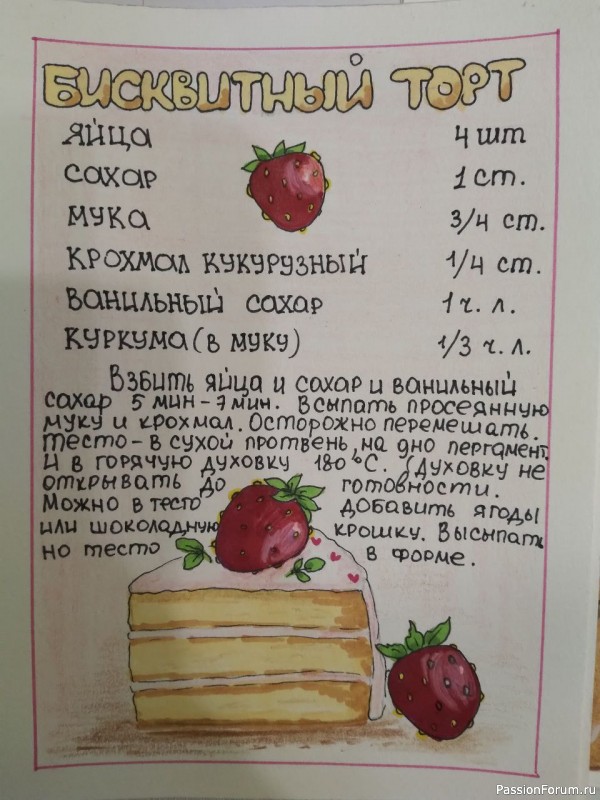 БИСКВИТНЫЙ ТОРТ
ЯЙЦА 4 шт
САХАР 1 ст.
МУКА 3/4 ст.
КРОХМАЛ КУКУРУЗНЫЙ 1/4 ст.
ВАНИЛЬНЫЙ САХАР 1 ч. л.
КУРКУМА (В МУКУ) 1/3 ч. л.
Взбить яйца и сахар и ванильный
сахар 5 мин-7 мин. Всыпать просеянную
муку и крохмал. Осторожно перемешать.
Тесто - в сухой протвень, на дно пергамент.
И в горячую духовку 180°С. (Духовку не
открывать до готовности.
Можно в тесто добавить ягоды
или шоколадную крошку. Высыпать
но тесто в форме.
PassionForum.ru